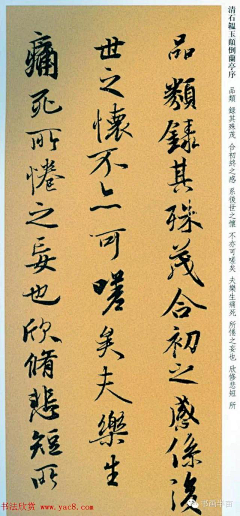 清石韞玉顛倒蘭亭序
品類 録其殊茂 合初終之感 系後世之懷 不亦可嗟矣 夫樂生痛死 所惓之妄也 欣修悲短 所
品類錄其殊茂合初之感係後
世之懷不亦可嗟矣夫樂生
痛死所惓之妄也欣脩悲短所
书法欣赏 www.yac8.com